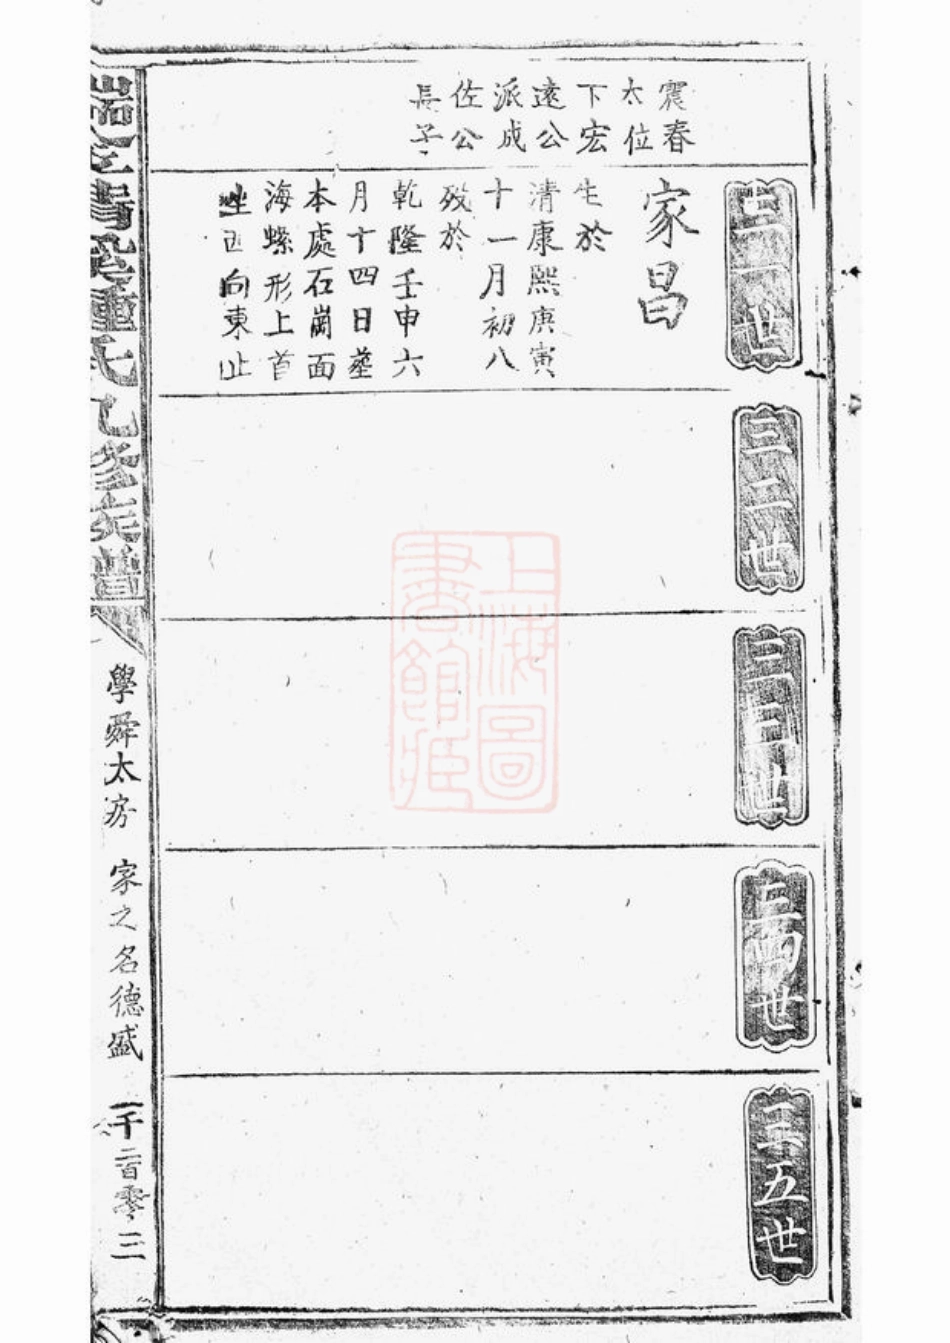 震春
太位
下宏
遠公
派成
佐公
長子
三一世
家昌
生於
清康熙庚寅
十一月初八
歿於
乾隆壬申六
月十四日塟
本處石崗面
海螺形上首
坐西向東止
三二世
三三世
三四世
三五世
鍾氏九修族譜
學舜太房
家之名德盛
一千二百零三
上海圖
書館藏